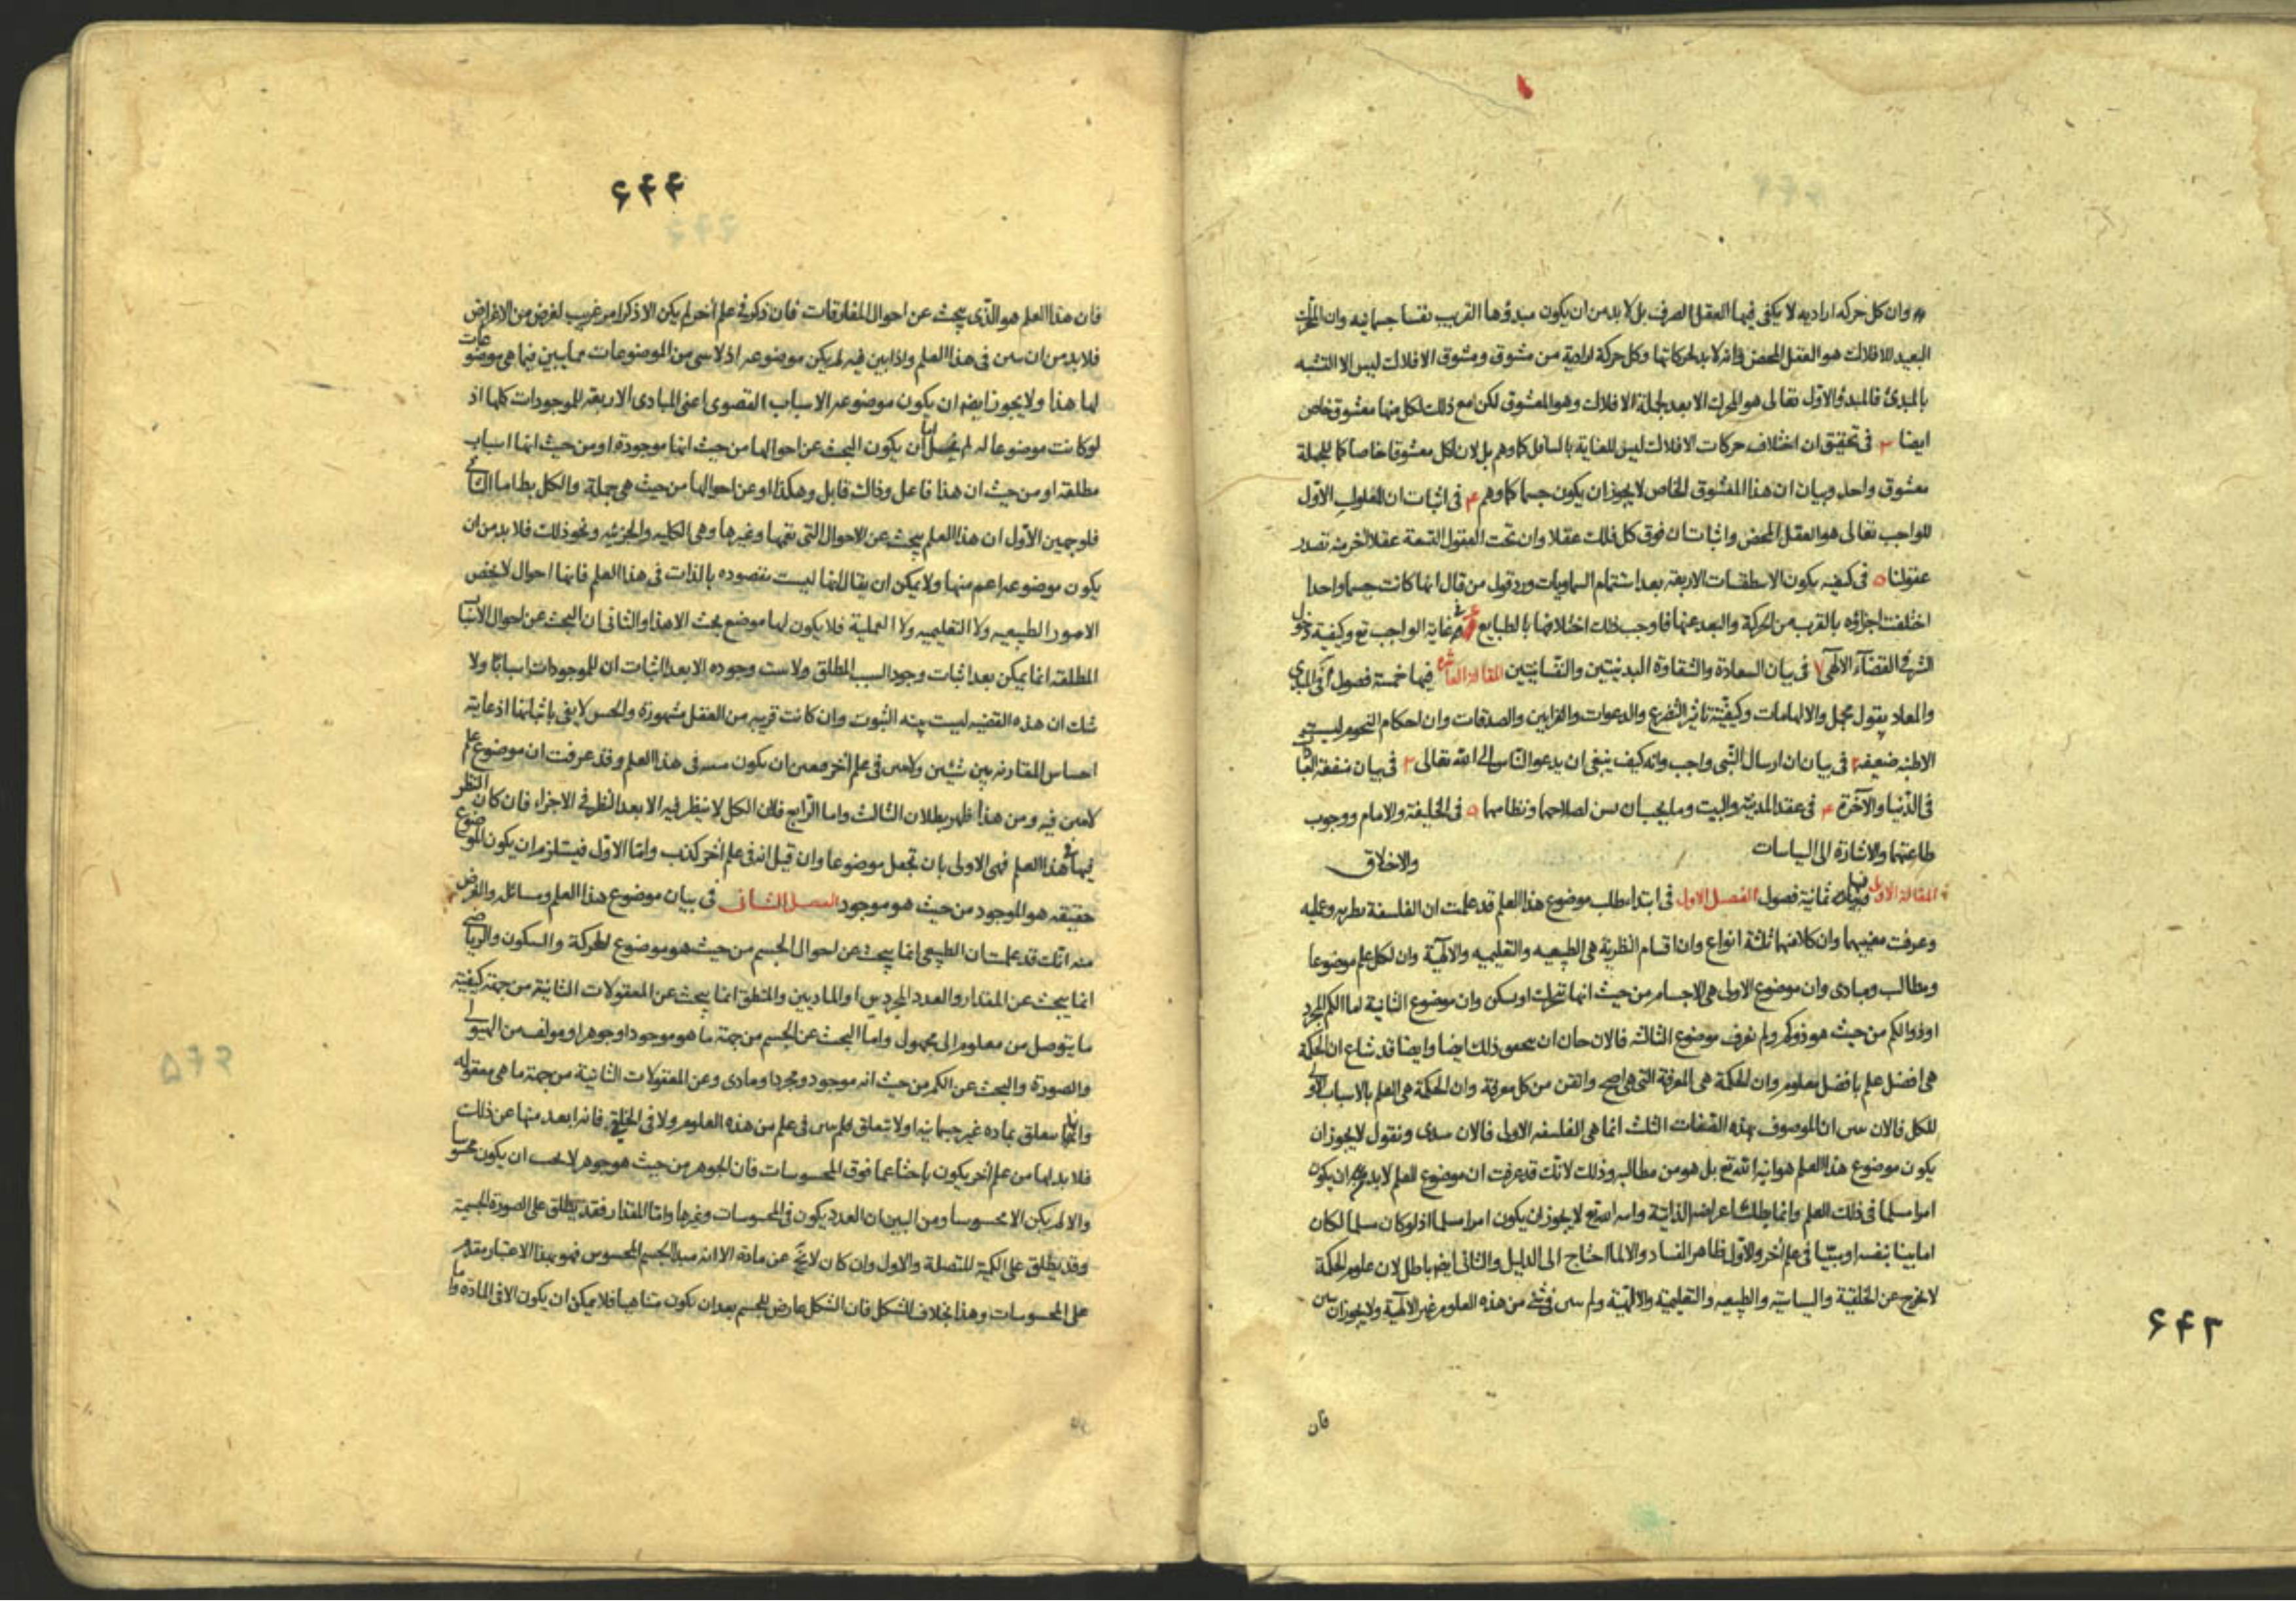 وان كل حركه اراديه لا يكفى فيها العقل الصرف بل لا بد من ان يكون مبدؤها القريب نفسا جسمانيه وان المحرك
البعيد للافلاك هو العقل المحض فانه لا بد لحركاتها وكل حركة ارادية من مشوق ومشوق الافلاك ليس الا التشبه
بالمبدئ فالمبدؤ الاول تعالى هو المحرك الابعد لجملة الافلاك وهو المعشوق لكن مع ذلك لكل منها معشوق خاص
ايضا ٣ فى تحقيق ان اختلاف حركات الافلاك ليس للعناية بالسافل كما وهم بل لان لكل معشوقا خاصا كما للجملة
معشوق واحد وبيان ان هذا المعشوق الخاص لا يجوز ان يكون جسما كما وهم ۴ فى اثبات ان المعلول الاول
للواجب تعالى هو العقل المحض واثبات ان فوق كل فلك عقلا وان تحت العقول التسعة عقلا اخر منه تصدر
عقولنا ۵ فى كيفيه يكون الاسطقسات الاربعه بعد استتمام السماويات ورد قول من قال انما كانت جسما واحدا
اختلفت اجزاؤه بالقرب من الحركة والبعد عنها فاوجب ذلك اختلافها بالطبايع ۶ فى عناية الواجب تع وكيفية دخول
الشر فى القضآء الالهى ۷ فى بيان السعادة والشقاوة البدنيتين والنفسانيتين المقالة العاشره فيها خمسة فصول آ فى المبدى
والمعاد بقول مجمل والالهامات وكيفية تاثير التضرع والدعوات والقرابين والصدقات وان احكام النجوم ليست
الا ظنه ضعيفه ٢ فى بيان ان ارسال النبى واجب وانه كيف ينبغى ان يدعو الناس الى الله تعالى ٣ فى بيان منفعة العبادات
فى الدنيا والآخرة ۴ فى عقد المدينة والبيت وما يجب ان يسن لصلاحها ونظامها ۵ فى الخليفة والامام ووجوب
طاعتهما والاشارة الى السياسات والاخلاق
المقالة الاولى وفيها ثمانية فصول الفصل الاول فى ابتداء طلب موضوع هذا العلم قد علمت ان الفلسفة نظريه وعمليه
وعرفت معنييهما وان كلا منهما ثلثة انواع وان اقسام النظرية هى الطبيعيه والتعليميه والالهية وان لكل علم موضوعا
ومطالب ومبادى وان موضوع الاولى هى الاجسام من حيث انها تتحرك او تسكن وان موضوع الثانية اما الكم المجرد
او ذو الكم من حيث هو ذو كم ولم نعرف موضوع الثالثه فالان حان ان نتحقق ذلك ايضا وايضا قد شاع ان الحكمة
هى افضل علم بافضل معلوم وان الحكمة هى المعرفة التى هى اصح واتقن من كل معرفة وان الحكمة هى العلم بالاسباب الاولى
للكل فالان نبين ان الموصوف بهذه الصفات الثلث انما هى الفلسفه الاولى فالان نبتدى ونقول لا يجوز ان
يكون موضوع هذا العلم هو انية الله تع بل هو من مطالبه وذلك لانك قد عرفت ان موضوع العلم لا بد من ان يكون
امرا مسلما فى ذلك العلم وانما يطلب اعراضه الذاتية وانيه الله تع لا يجوز ان يكون امرا مسلما اذ لو كان مسلما لكان
اما بينا بنفسه او مبينا فى علم آخر والاول ظاهر الفساد والا لما احتاج الى الدليل والثانى ايضا باطل لان علوم الحكمة
لا تخرج عن الخلقية والسياسيه والطبيعيه والتعليميه والالهية ولم يبين فى شئ من هذه العلوم غير الالهية ولا يجوز ان يبين
۶۴۳
فان
۶۴۴
فان هذا العلم هو الذى يبحث عن احوال المفارقات فان ذكر فى علم آخر لم يكن الا ذكر امر غريب لغرض من الاغراض
فلا بد من ان يبين فى هذا العلم واذا بين فيه لم يكن موضوعه اذ لا شى من الموضوعات مما يبين فيما هى موضوعات
لها هذا ولا يجوز ايضا ان يكون موضوعه الاسباب القصوى اعنى المبادى الاربعه للموجودات كلها اذ
لو كانت موضوعا له لم يخل اما ان يكون البحث عن احوالها من حيث انها موجودة او من حيث انها اسباب
مطلقه او من حيث ان هذا فاعل وذاك قابل وهكذا او عن احوالها من حيث هى جملة والكل بط اما الثانى
فلوجهين الاول ان هذا العلم يبحث عن الاحوال التى تعمها وغيرها وهى الكليه والجزئيه ونحو ذلك فلا بد من ان
يكون موضوعه اعم منها ولا يمكن ان يقال انها ليست مقصوده بالذات فى هذا العلم فانها احوال لا يخص
الامور الطبيعيه ولا التعليميه ولا العملية فلا يكون لها موضع بحث الا هذا والثانى ان البحث عن احوال الاسباب
المطلقه انما يمكن بعد اثبات وجود السبب المطلق ولا يثبت وجوده الا بعد اثبات ان للموجودات اسبابا ولا
شك ان هذه القضيه ليست بينه الثبوت وان كانت قريبه من العقل مشهورة والحس لا يفى باثباتها اذ غايته
احساس المقارنه بين شيئين ولا يبين فى علم آخر فتعين ان يكون مبينه فى هذا العلم وقد عرفت ان موضوع علم
لا يبين فيه ومن هذا ظهر بطلان الثالث واما الرابع فلان الكل لا ينظر فيه الا بعد النظر فى الاجزاء فان كان النظر
فيها فى هذا العلم فهى الاولى بان تجعل موضوعا وان قيل انه فى علم آخر كذب واما الاول فيستلزم ان يكون الموضوع
حقيقه هو الموجود من حيث هو موجود الفصل الثانى فى بيان موضوع هذا العلم ومسائله والغرض
منه انك قد علمت ان الطبيعى انما يبحث عن احوال الجسم من حيث هو موضوع للحركة والسكون والرياضى
انما يبحث عن المقدار والعدد المجردين او الماديين والمنطق انما يبحث عن المعقولات الثانية من جهة كيفية
ما يتوصل من معلوم الى مجهول واما البحث عن الجسم من جهة ما هو موجود او جوهر او مولف من الهيولى
والصورة والبحث عن الكم من حيث انه موجود ومجرد او مادى وعن المعقولات الثانية من جهة ما هى معقوله
وانها يتعلق بماده غير جسمانيه او لا يتعلق فلم يبين فى علم من هذه العلوم ولا فى الخلقى فانه ابعد منها عن ذلك
فلا بد لها من علم آخر يكون باحثا عما فوق المحسوسات فان الجوهر من حيث هو جوهر لا يجب ان يكون محسوسا
والا لم يكن الا محسوسا ومن البين ان العدد يكون فى المحسوسات وغيرها واما المقدار فقد يطلق على الصورة الجسمية
وقد يطلق على الكمية المتصلة والاول وان كان لا عن مادة الا انه مبدا الجسم المحسوس فهو بهذا الاعتبار مقدم
على المحسوسات وهذا بخلاف الشكل فان الشكل عارض للجسم بعد ان يكون متناهيا فلا يمكن ان يكون الا فى المادة واما